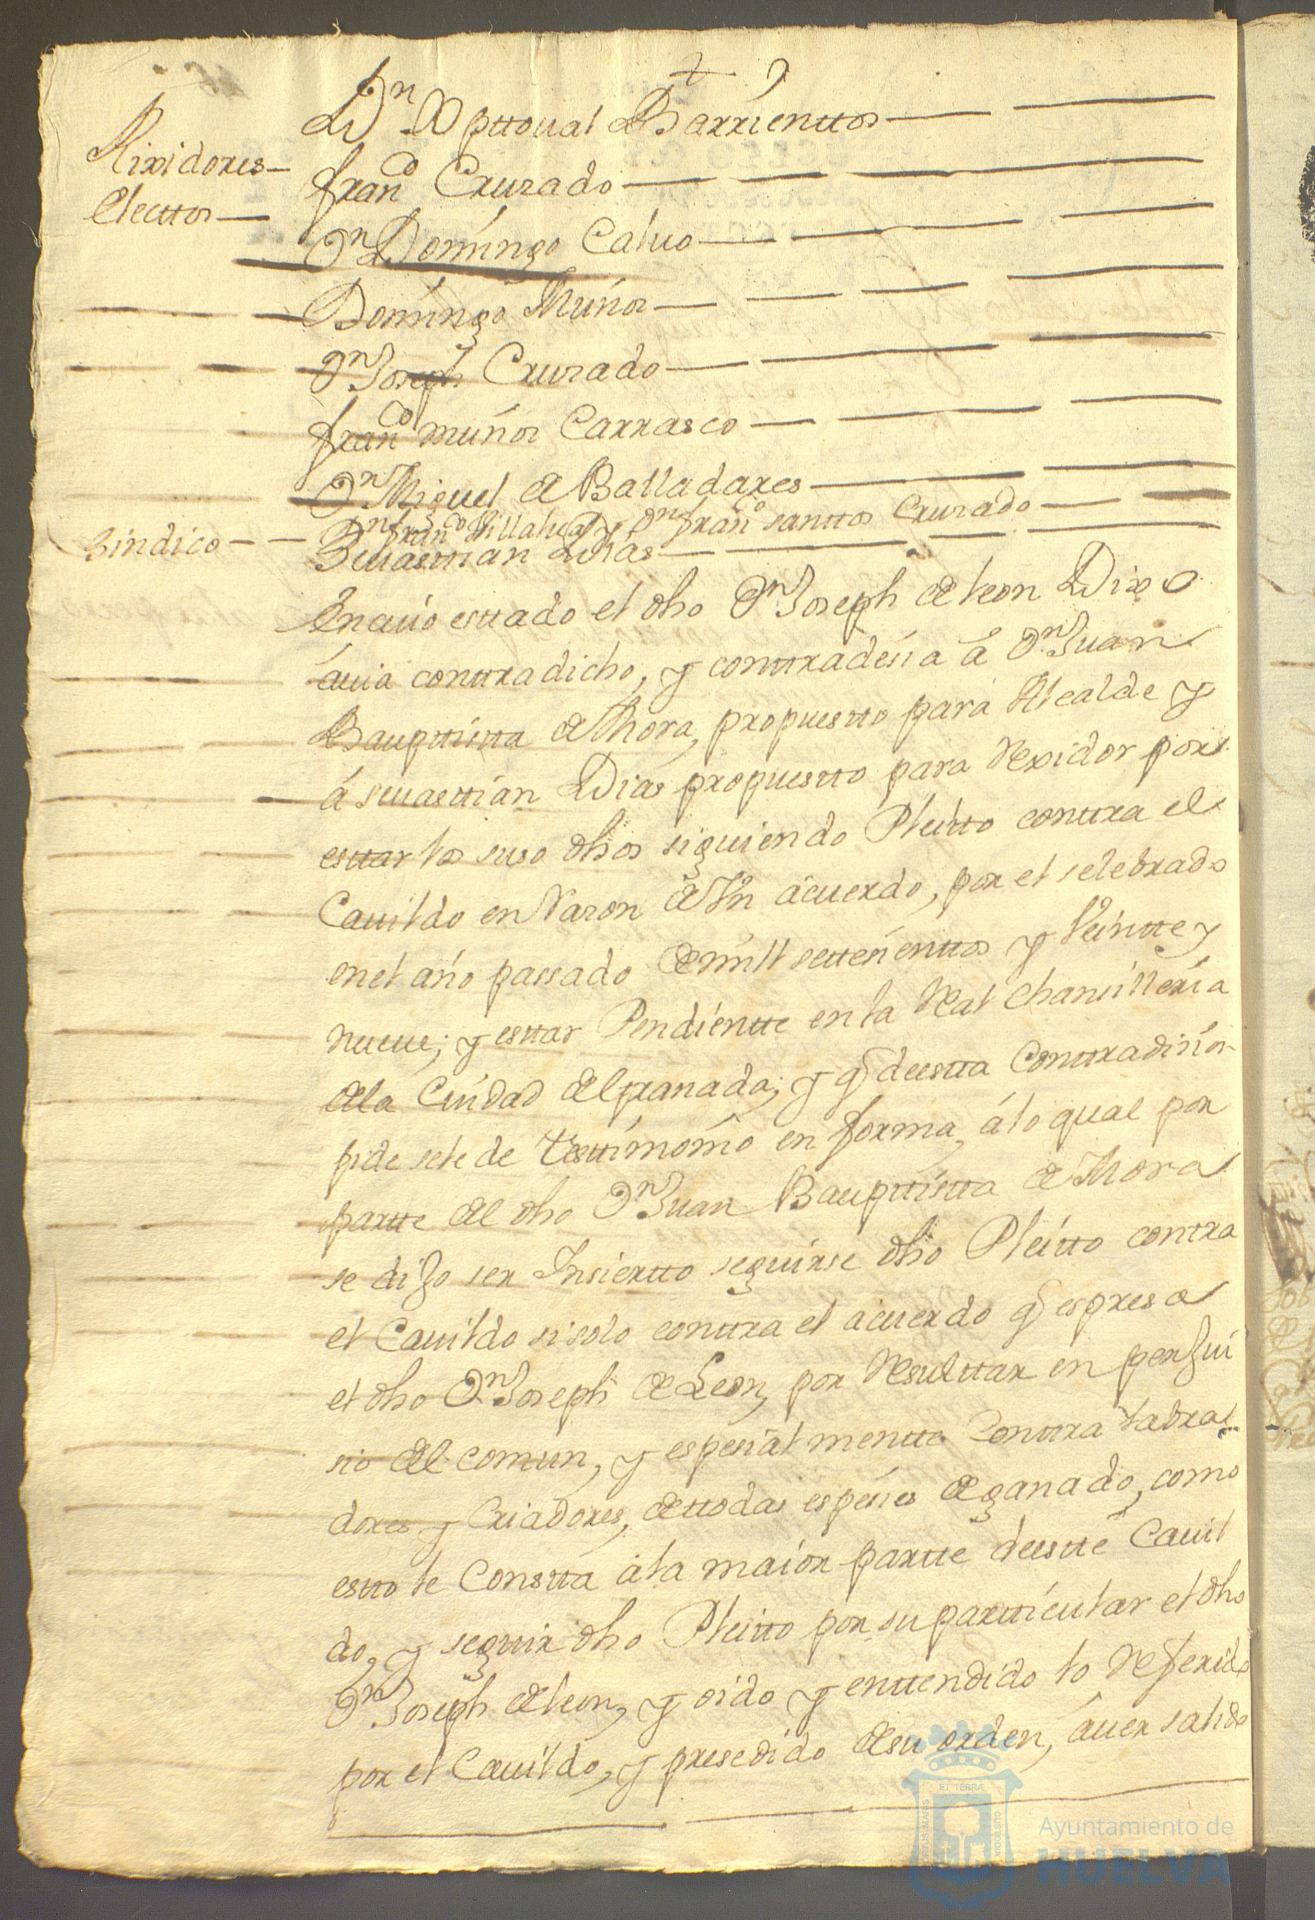 Dn Xpttoual de Barrienttos
Rixidores
Electtos
Franco Cruzado
Dn Domingo Caluo
Domingo Muños
Dn Joseph Cruzado
Franco Muños Carrasco
Dn Miguel de Balladares
Dn Franco Villalua y Dn Franco santtos Cruzado
Sindico
Seuasttian Dias
En cuio esttado el dho Dn Joseph de leon Dixo
áuia conttradicho, y conttradesia á Dn Juan
Baupttistta de Mora, propuestto para Alcalde y
á seuasttian Dias propuestto para Rexidor por
esttar los suso dhos siguiendo Pleitto conttra el
Cauildo en Razon de Vn ácuerdo, por el selebrado
en el año passado de mill settesienttos y Veintte y
nueue; y esttar Pendientte en la Real Chansilleria
de la Ciudad de Granada; y q deestta Conttradision
pide se le de Testtimonio en forma, á lo qual por
partte del dho Dn Juan Baupttistta de Mora
se dijo ser Insiertto seguirse dho Pleitto contra
el Cauildo si solo conttra el ácuerdo q espresa
el dho Dn Joseph de Leon, por Resulttar en perjui
sio del comun, y espesialmentte Conttra labra
dores y Criadores, de ttodas espesies de ganado, como
estto le Constta á la maior partte deestte Cauil
do, y seguir dho Pleitto por su partticular el dho
Dn Joseph de leon, y oido y enttendido lo Referido
por el Cauildo, y presedido de su orden, áuer salido
Ayuntamiento de
HUELVA